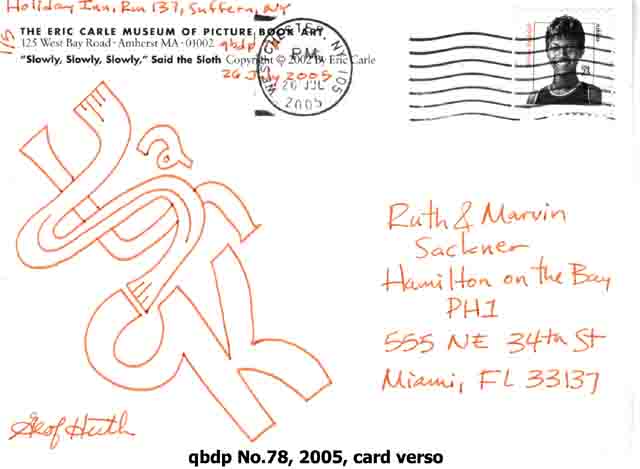 Holiday Inn, Rm 137, Suffern, NY
1/5
THE ERIC CARLE MUSEUM OF PICTURE BOOK ART
125 West Bay Road · Amherst MA · 01002 qbdp
"Slowly, Slowly, Slowly," Said the Sloth Copyright © 2002 By Eric Carle
26 July 2005
WESTCHESTER, NY 105
PM
26 JUL
2005
Ruth & Marvin
Sackner
Hamilton on the Bay
PH1
555 NE 34th St
Miami, FL 33137
Geof Huth
qbdp No.78, 2005, card verso